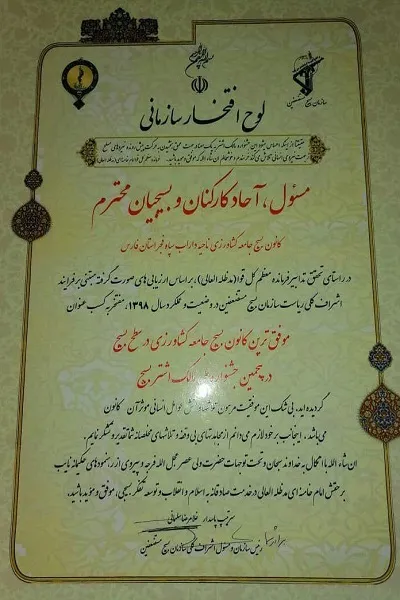 سازمان بسیج مستضعفین
لوح افتخار سازمانی
مسئول، آحاد کارکنان و بسیجیان محترم
کانون بسیج جامعه کشاورزی ناحیه داراب سپاه فجر استان فارس
در راستای تحقق تدابیر فرمانده معظم کل قوا (مدظله العالی)، بر اساس ارزیابی های صورت گرفته مبتنی بر فرایند
اشراف کلی ریاست سازمان بسیج مستضعفین در وضعیت و عملکرد سال ۱۳۹۸، مفتخر به کسب عنوان
موفق ترین کانون بسیج جامعه کشاورزی در سطح بسیج
در پنجمین جشنواره مالک اشتر بسیج
گردیده اید. بی شک این موفقیت مرهون عوامل انسانی موثر آن کانون
می باشد. اینجانب بر خود لازم می دانم از مجاهدتهای بی وقفه و تلاشهای مخلصانه شما تقدیر و تشکر نمایم.
ان شاء الله با اتکال به خداوند سبحان و تحت توجهات حضرت ولی عصر عجل الله فرجه و پیروی از رهنمودهای حکیمانه نایب
بر حقش امام خامنه ای مدظله العالی در خدمت صادقانه به اسلام و انقلاب و توسعه تفکر بسیجی، موفق و موید باشید.
سرتیپ پاسدار غلامرضا سلیمانی
رئیس سازمان و مسئول اشراف کلی سازمان بسیج مستضعفین